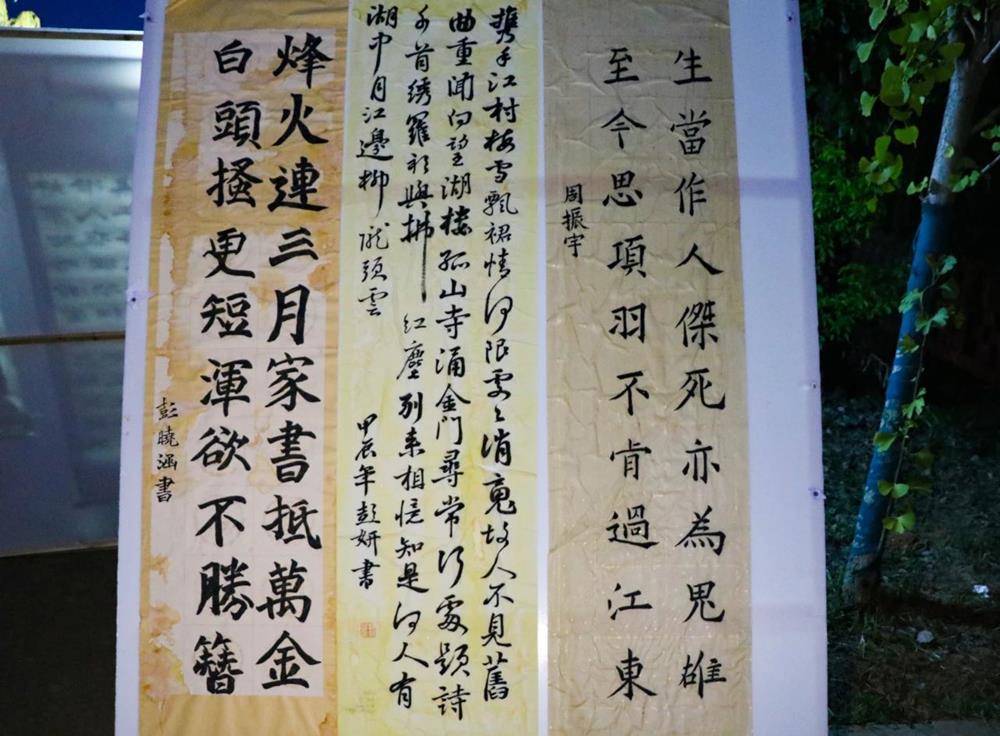 生當作人傑死亦為鬼雄
至今思項羽不肯過江東
周振宇
攜手江村梅雪飄裙情何限處々消魂故人不見舊
曲重聞向望湖楼孤山寺涌金門尋常行處題詩
千首绣羅衫與拂红塵别來相憶知是何人有
湖中月江邊柳隴頭雲
甲辰年彭妍書
烽火連三月家書抵萬金
白頭搔更短渾欲不勝簪
彭曉涵書